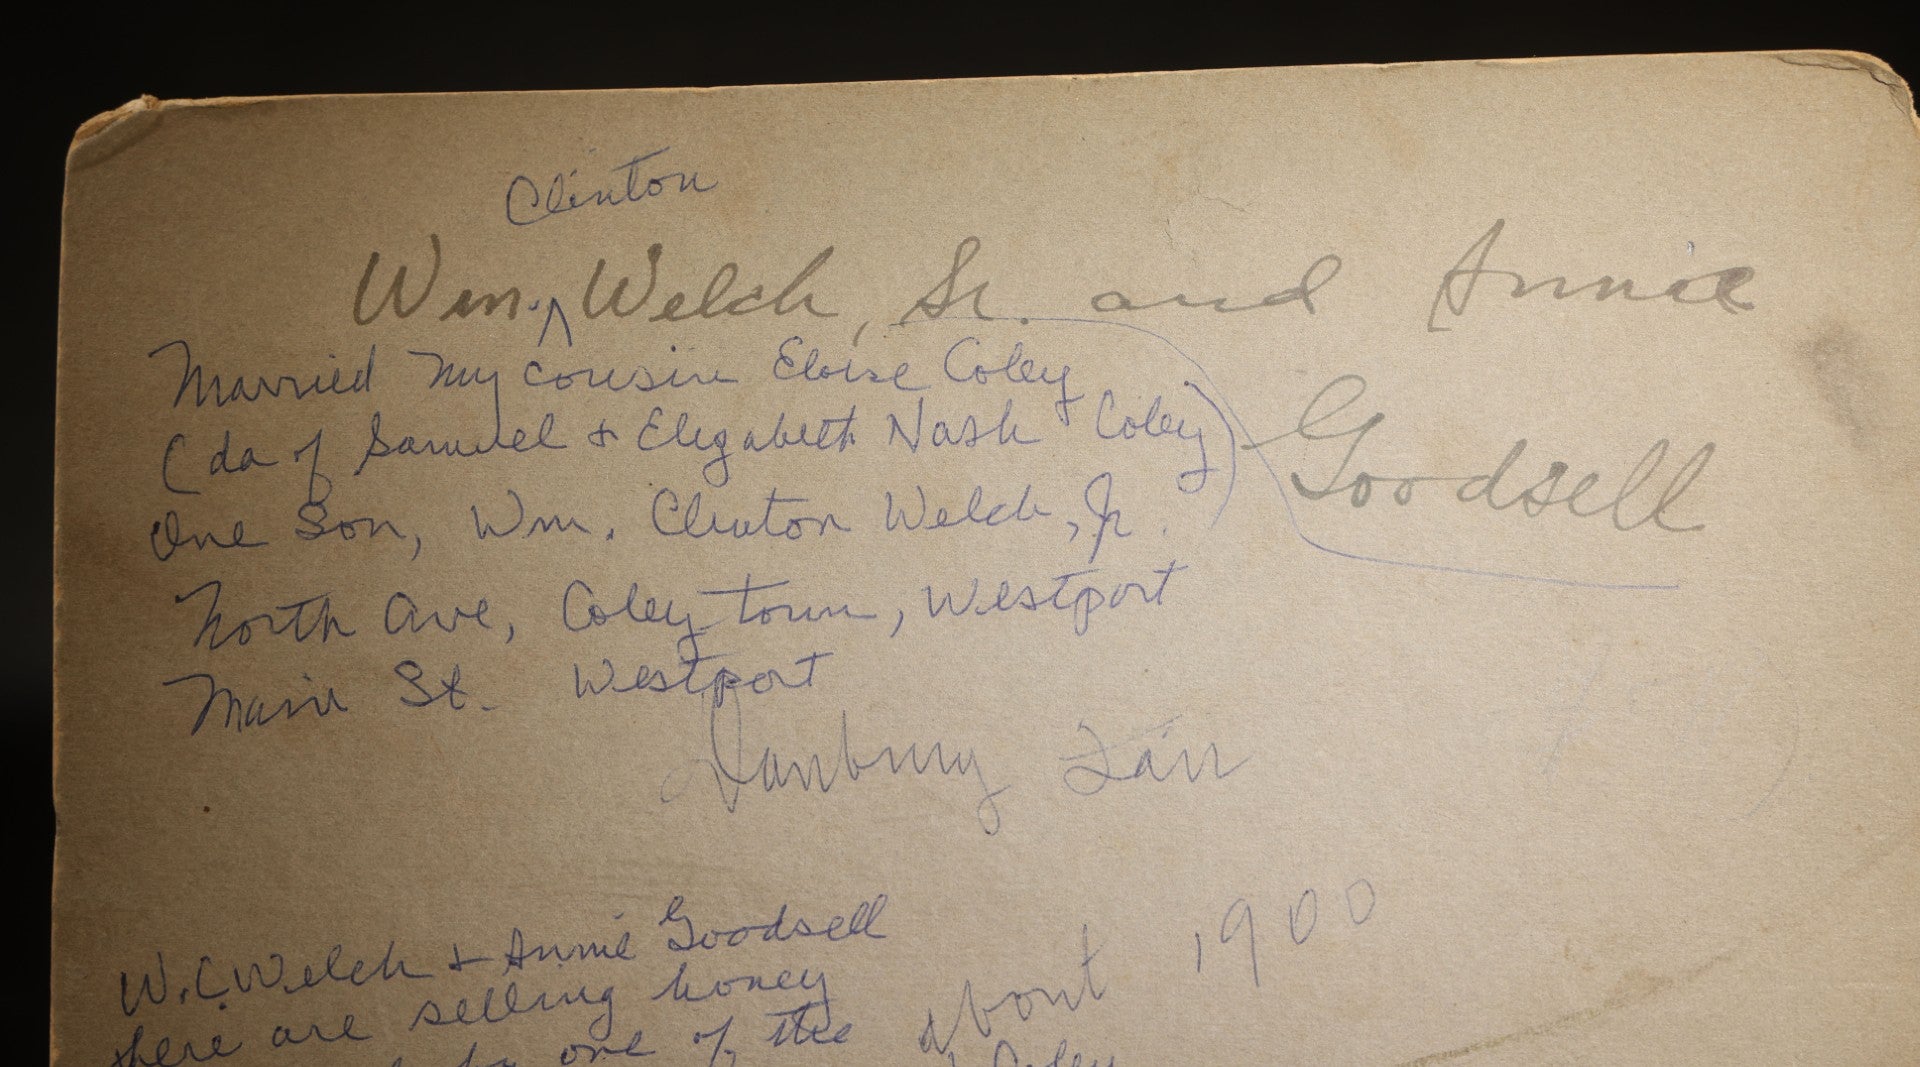 Clinton
Wm. ^ Welch, Sr. and Annie
Goodsell
Married my cousin Eloise Coley
(da of Samuel + Elizabeth Nash Coley)
One Son, Wm. Clinton Welch, Jr.
North Ave, Coleytown, Westport
Main St. Westport
Danbury Fair
about 1900
W.C. Welch + Annie Goodsell
here are selling honey
one of the
Coley